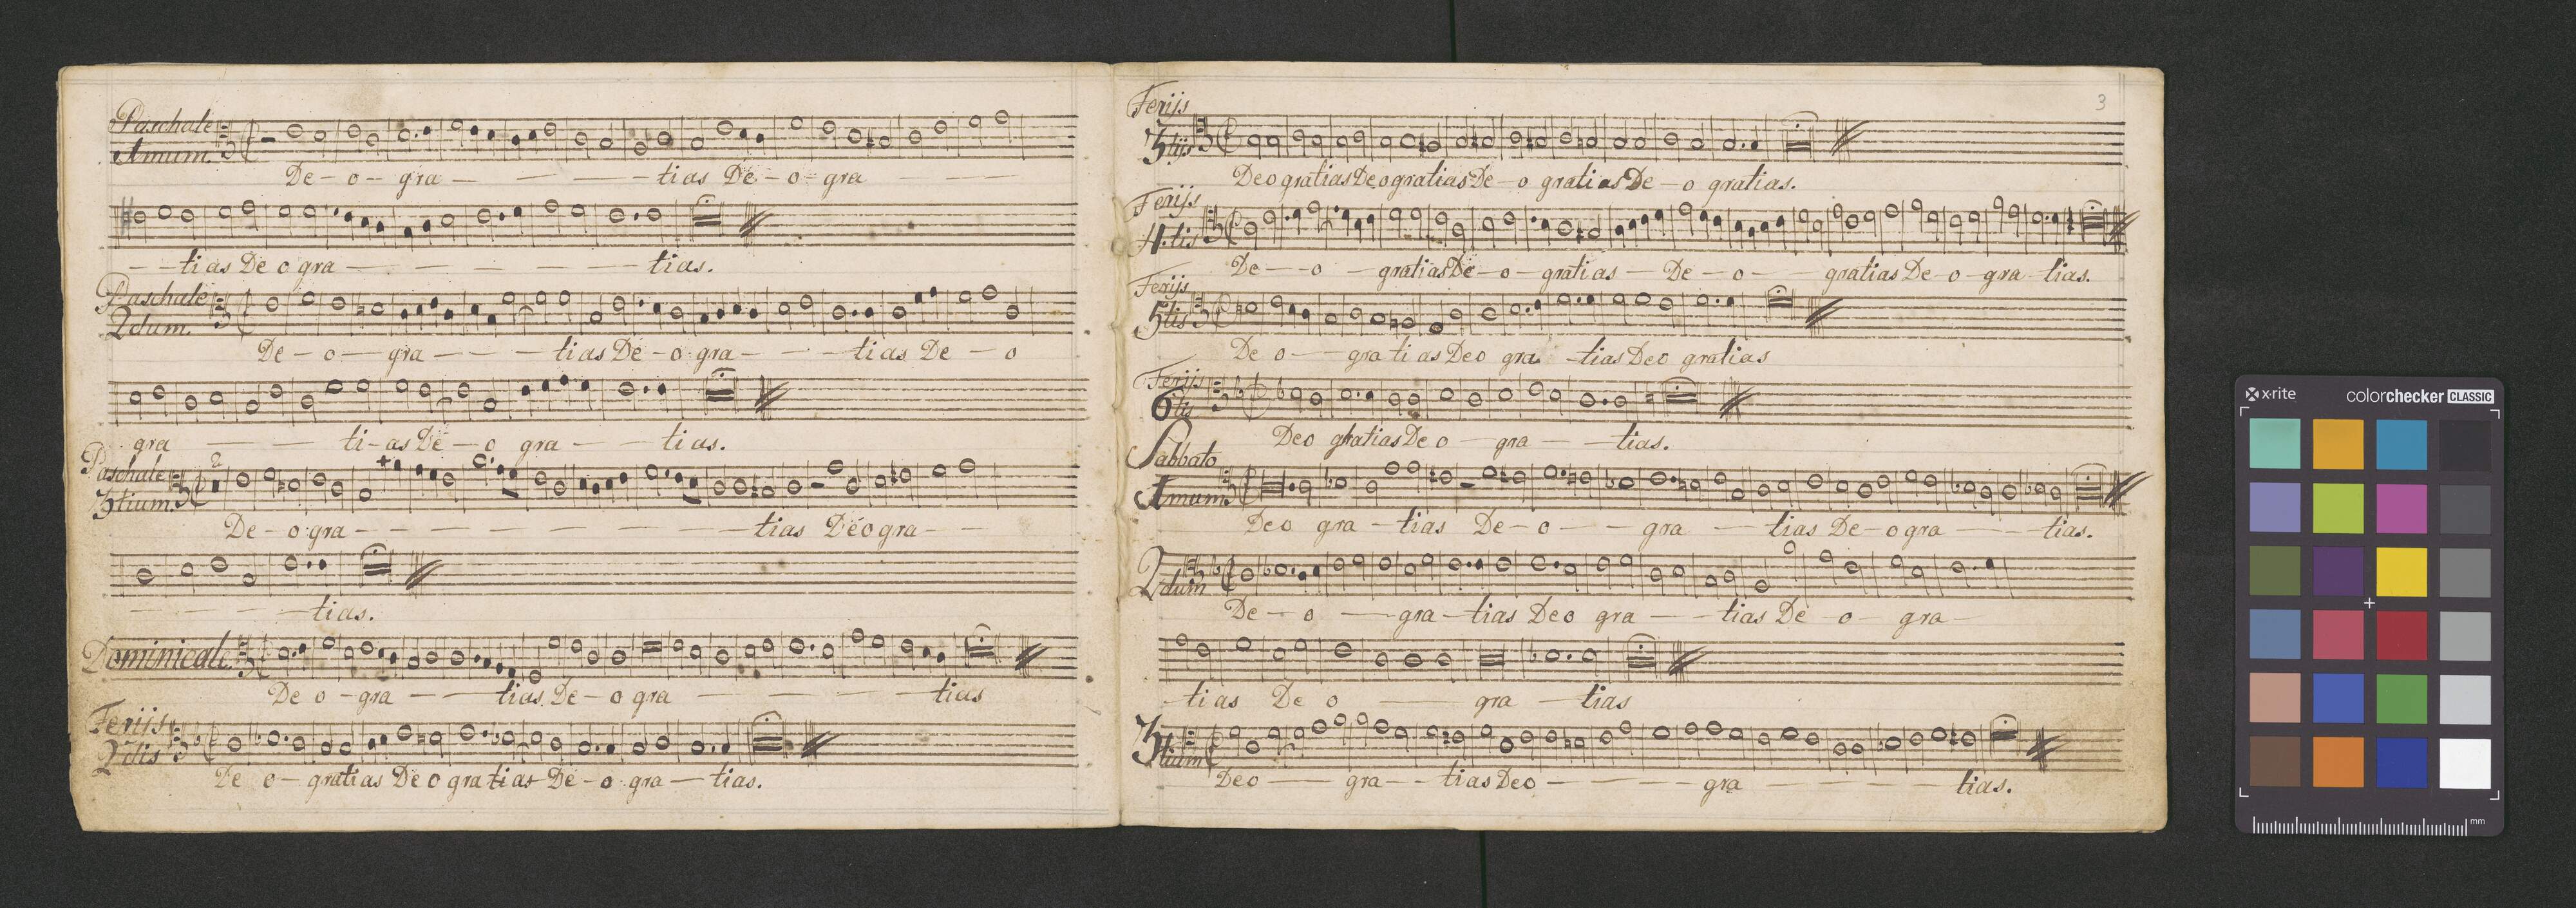 Paschale
1mum.
De - o - gra - - - - tias De - o - gra - - -
- - tias De o gra - - - - - - tias.
Paschale
2dum.
De - o - gra - - - tias De - o - gra - - - tias De - o
gra - - - ti - as De - o gra - - tias.
Paschale
3tium.
2
De - o gra - - - - - - - tias Deo gra - -
- - - - tias.
Dominicale
De o - gra - - - tias. De - o gra - - - - tias
Ferijs
2dis
De o - gratias De o gratias De - o - gra - tias.
3
Ferijs
3tijs
Deo gratias Deo gratias De - o gratias De - o gratias.
Ferijs
4.tis
De - - o - gratias De - o - gratias - De - o - gratias De - o - gra - tias.
Ferijs
5tis
De o - - gratias Deo gra - tias Deo gratias
Ferijs
6tis
Deo gratias De o - gra - - tias.
Sabbato
1mum.
Deo gra - tias De - o - - gra - - tias De - o gra - - - tias.
2dum
De - o - - gra - tias Deo gra - - tias De - o - gra -
- tias De o - - gra - tias
3tium
Deo - - gra - - tias Deo - - - - gra - - - - - tias.
x-rite
colorchecker CLASSIC
mm